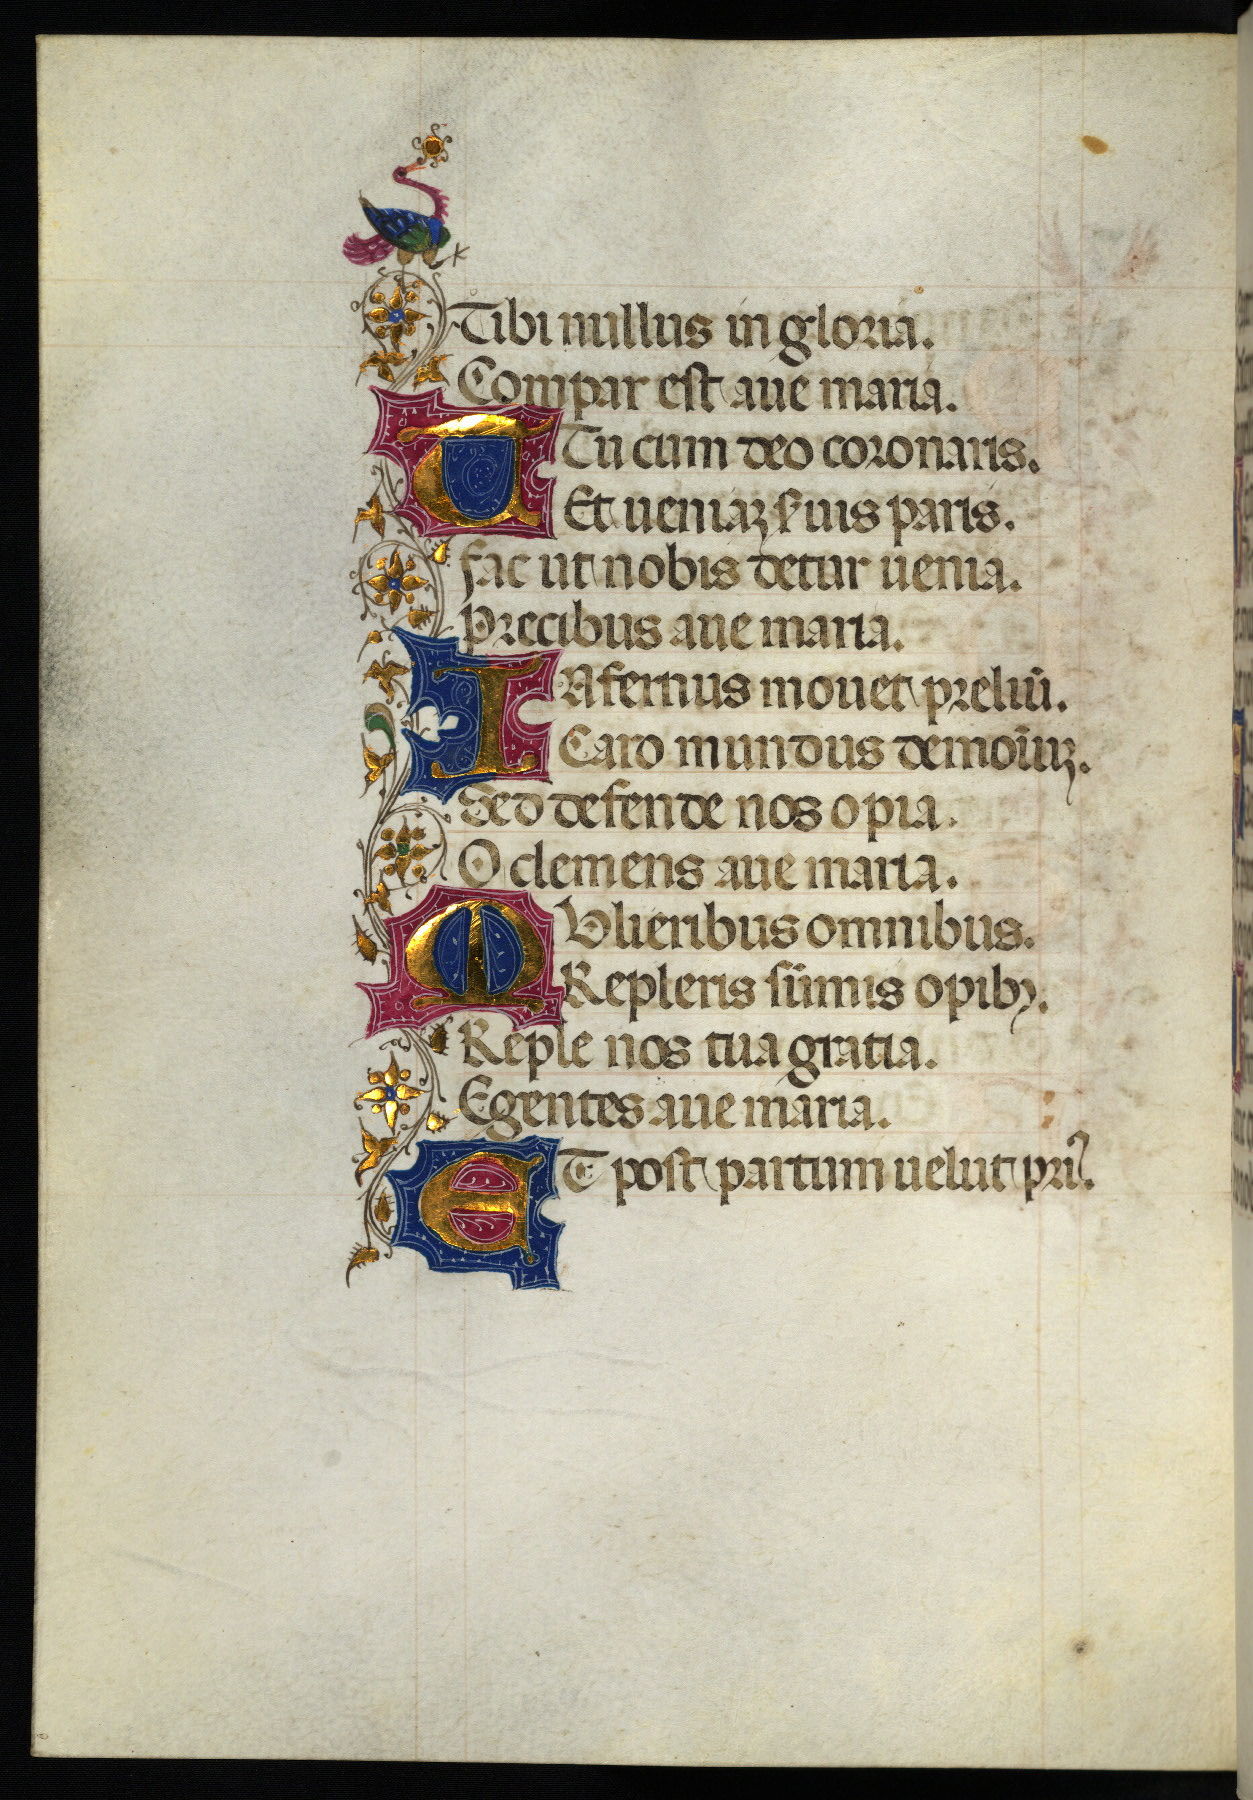 Tibi nullus in gloria.
Compar est aue maria.
Tu cum deo coronaris.
Et ueniaȝ s̃uis paris.
fac ut nobis detur uenia.
Precibus aue maria.
INfernus mouet preliū.
Caro mundus demoīuȝ.
Sed defende nos o pia.
O clemens aue maria.
MVlieribus omnibus.
Repleris sūmis opibꝫ.
Reple nos tua gratia.
Egentes aue maria.
ET post partum uelut priꝰ.